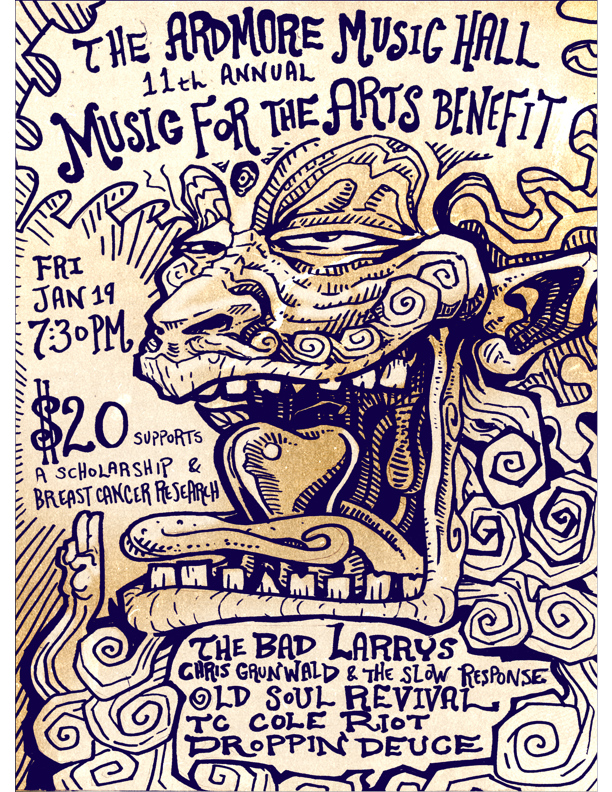 THE ARDMORE MUSIC HALL
11th ANNUAL
MUSIC FOR THE ARTS BENEFIT
FRI
JAN 19
7:30PM
$20 SUPPORTS
A SCHOLARSHIP &
BREAST CANCER RESEARCH
THE BAD LARRYS
CHRIS GRUNWALD & THE SLOW RESPONSE
OLD SOUL REVIVAL
TC COLE RIOT
DROPPIN DEUCE